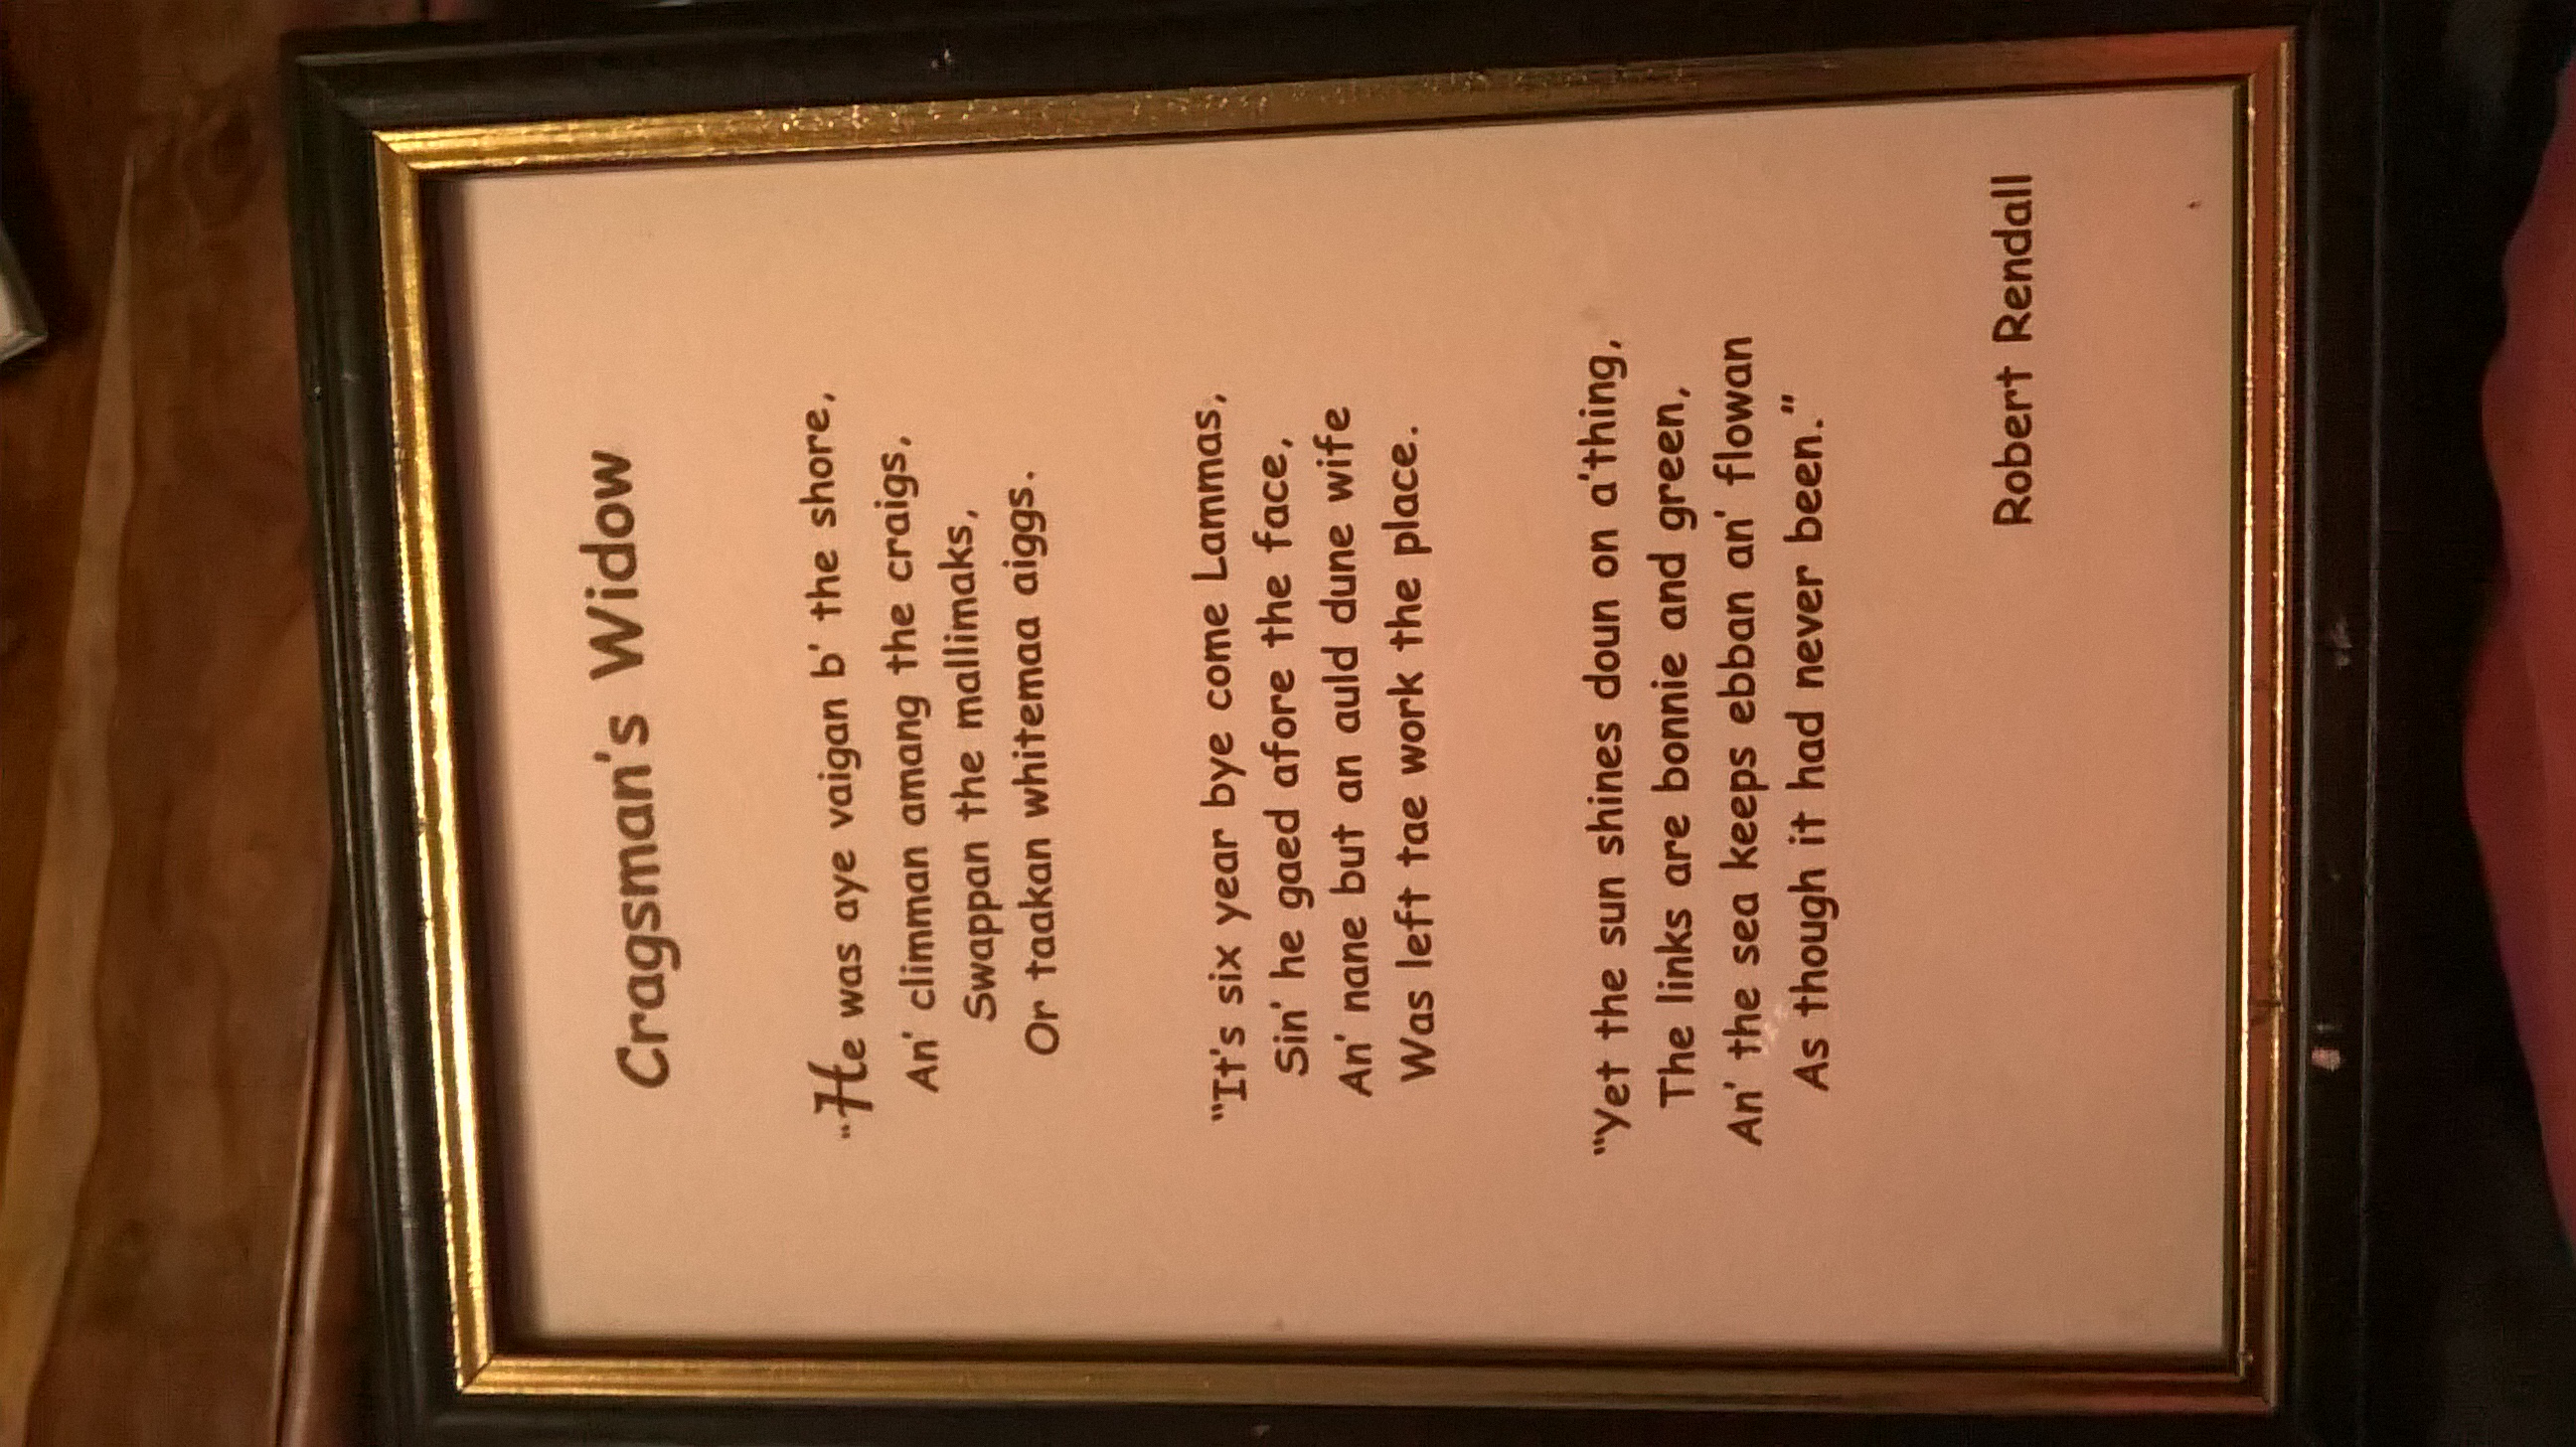 Cragsman's Widow
"He was aye vaigan b' the shore,
An' climman amang the craigs,
Swappan the mallimaks,
Or taakan whitemaa aiggs.
"It's six year bye come Lammas,
Sin' he gaed afore the face,
An' nane but an auld dune wife
Was left tae work the place.
"Yet the sun shines doun on a'thing,
The links are bonnie and green,
An' the sea keeps ebban an' flowan
As though it had never been."
Robert Rendall